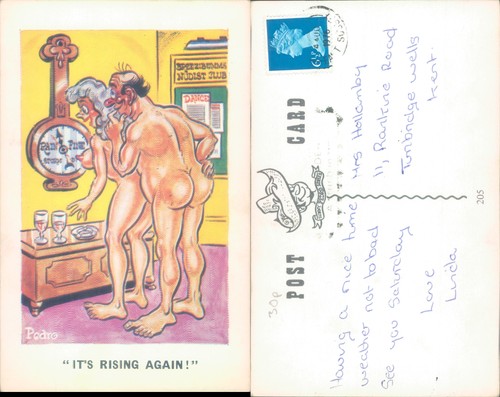 SPEEDIBUMMS
NUDIST CLUB
DANCE
RAIN
FINE
STORMY
Pedro
"IT'S RISING AGAIN!"
POST CARD
205
30p
Having a nice time
weather not to bad
See you Saturday
Love
Linda
Mrs Hollamby
11, Rankine Road
Tunbridge wells
Kent.